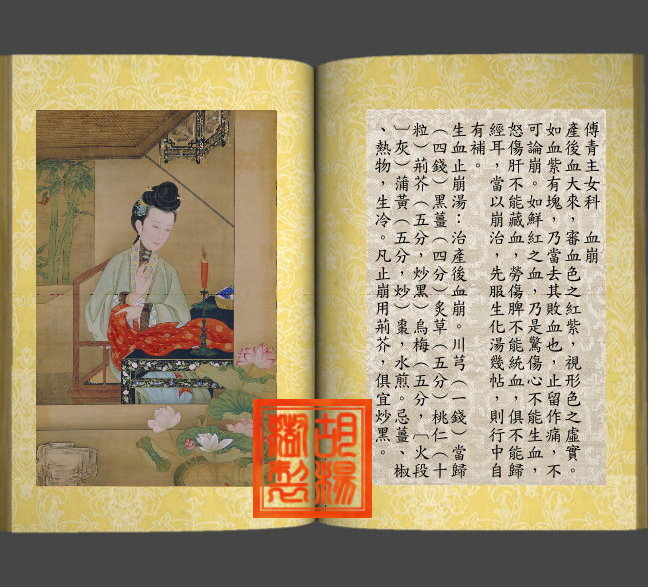 傅青主女科　血崩
產後血大來，審血色之紅紫，視形色之虛實。
如血紫有塊，乃當去其敗血也，止留作痛，不
可論崩。如鮮紅之血，乃是驚傷心不能生血，
怒傷肝不能藏血，勞傷脾不能統血，俱不能歸
經耳，當以崩治，先服生化湯幾帖，則行中自
有補。
生血止崩湯：治產後血崩。川芎（一錢）當歸
（四錢）黑薑（四分）炙草（五分）桃仁（十
粒）荊芥（五分，炒黑）烏梅（五分，〔火段
〕灰）蒲黃（五分，炒）棗，水煎。忌薑、椒
、熱物，生冷。凡止崩用荊芥，俱宜炒黑。
胡楊
製